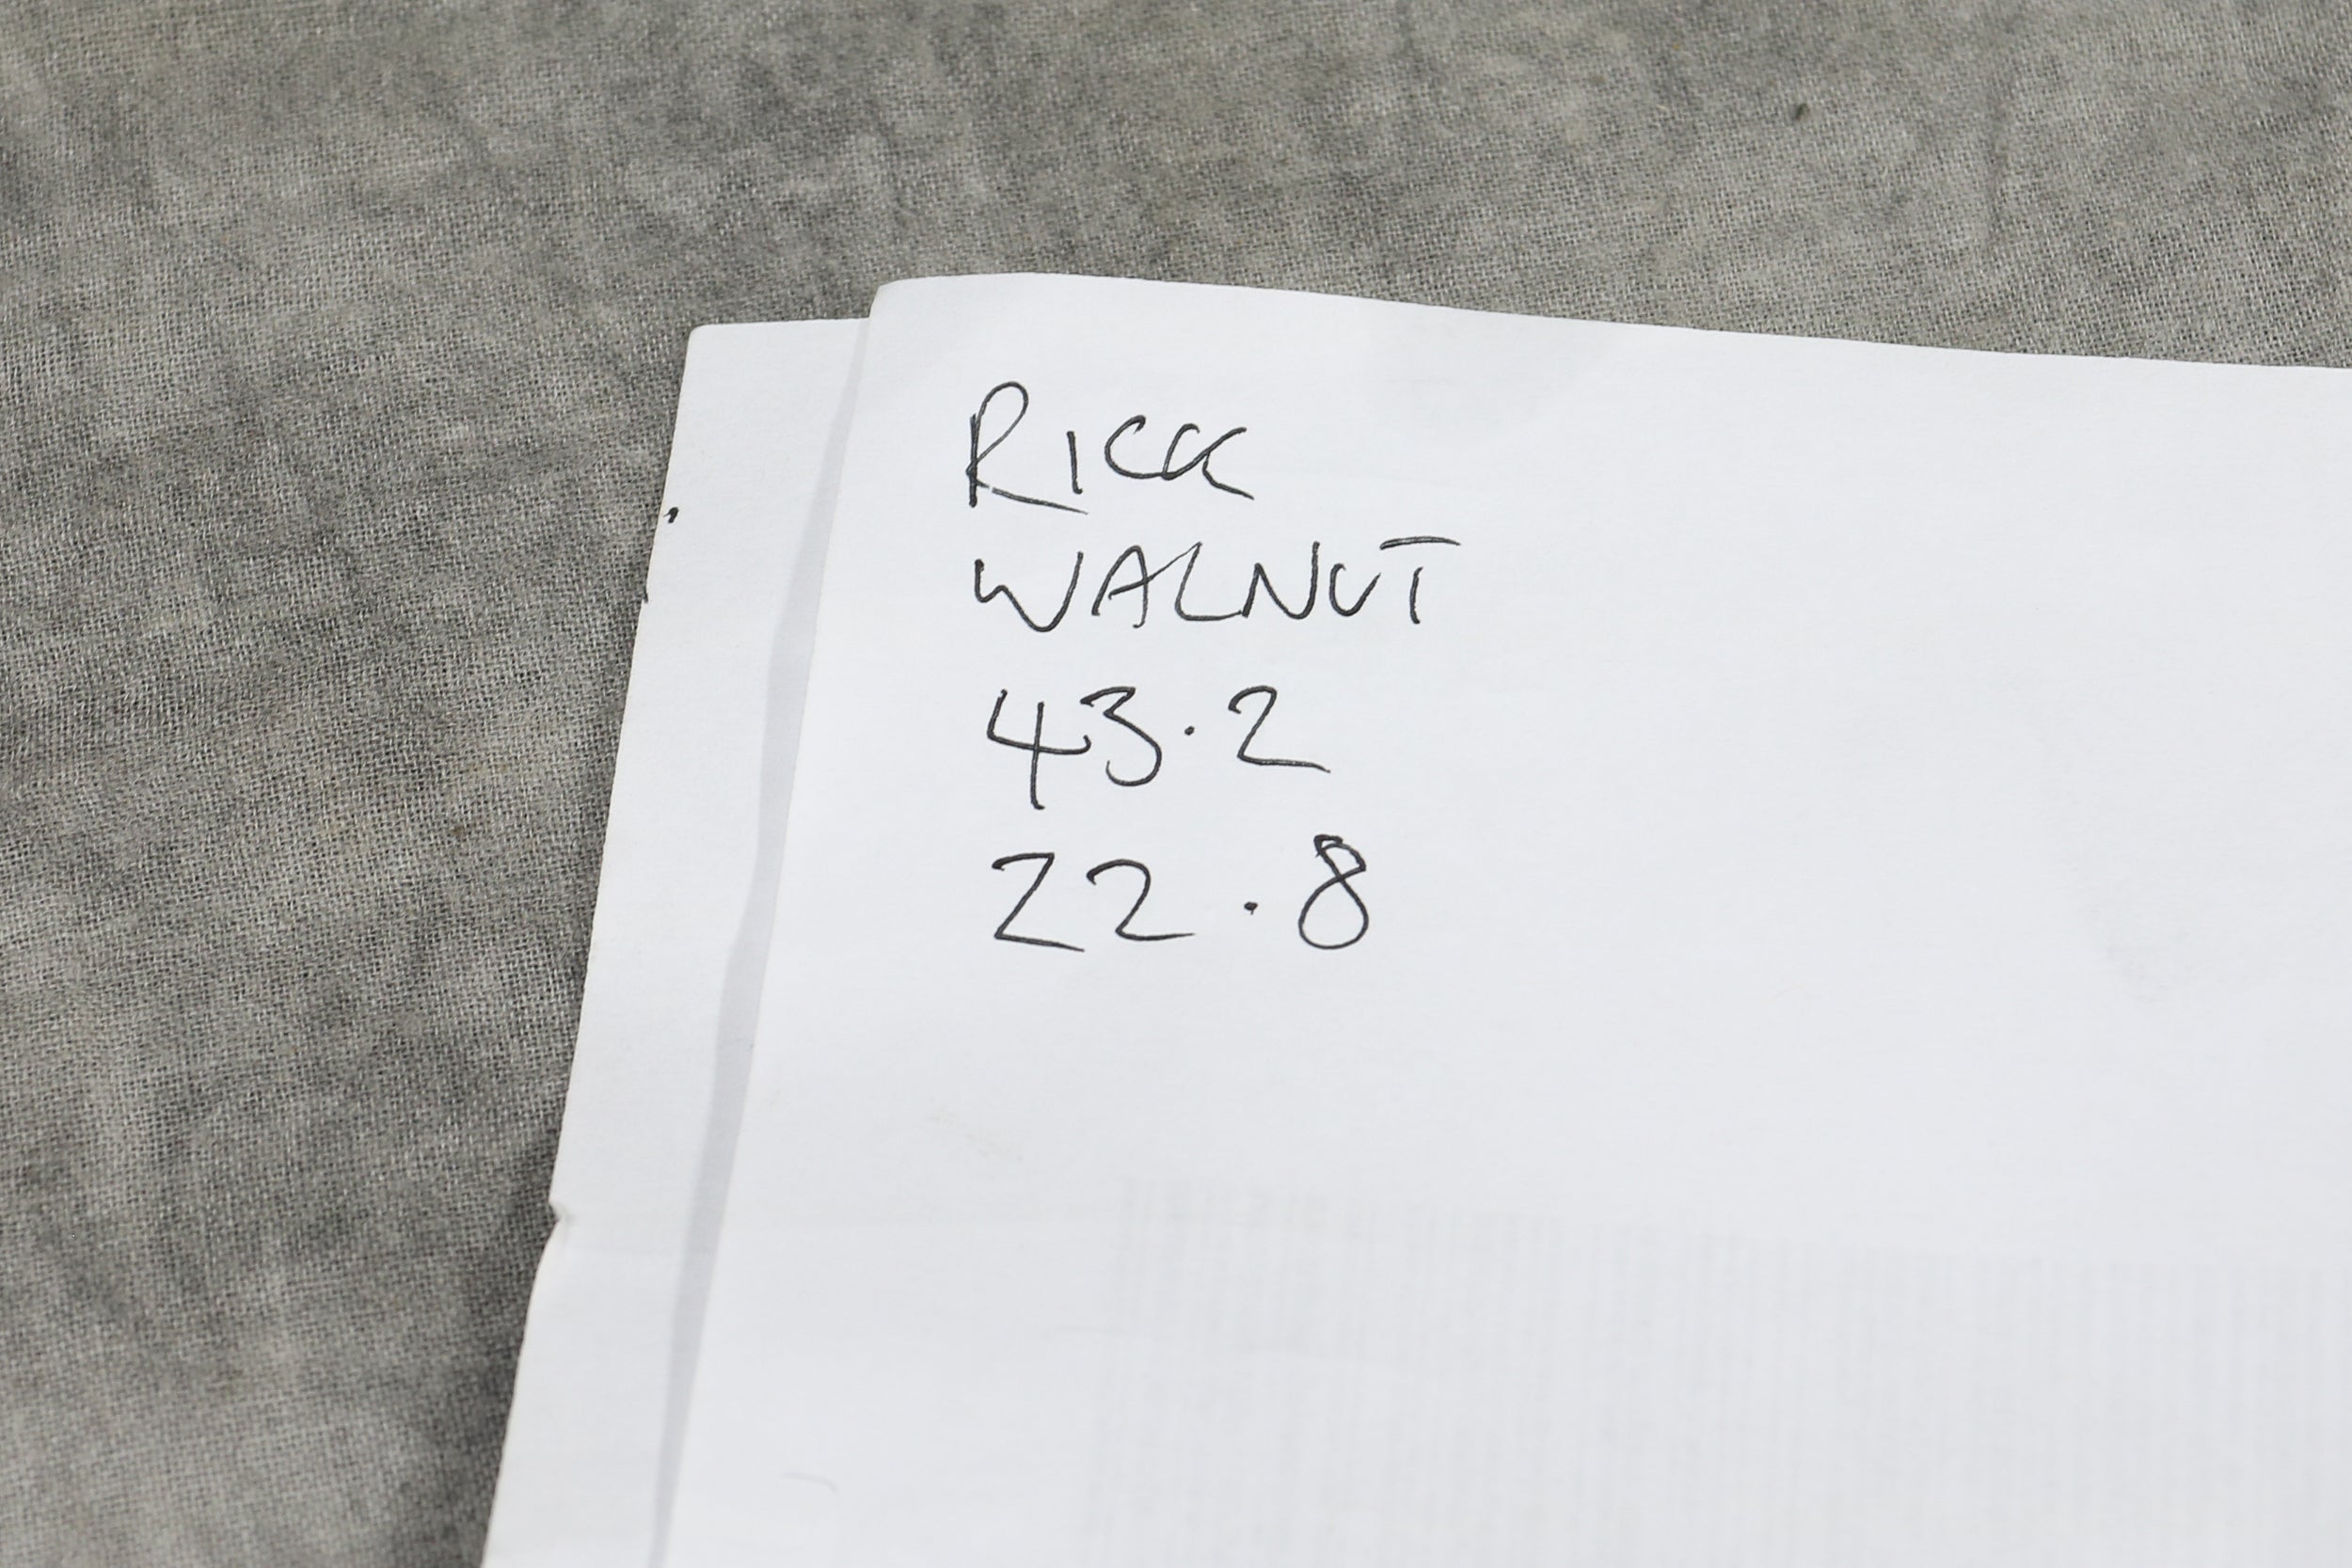 RICK
WALNUT
43.2
22.8